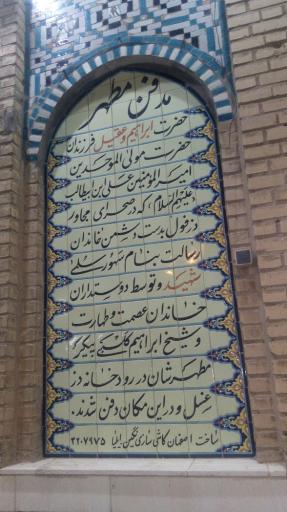 مدفن مطهر
حضرت ابراهیم و عقیل فرزندان
حضرت مولی الموحدین
امیرالمؤمنین علی ابن ابیطالب
(علیهم السلام) که در صحرای مجاور
دزفول بدست دشمن خاندان
رسالت بنام سهور سلمے
شهید و توسط دوستداران
خاندان عصمت و طهارت
و شیخ ابراهیم کلکچے پیکر
مطهرشان در رودخانه دز
غسل و در این مکان دفن شدند.
ساخت اصفهان کاشی سازی نگین ایلیا
۳۲۰۷۹۷۵